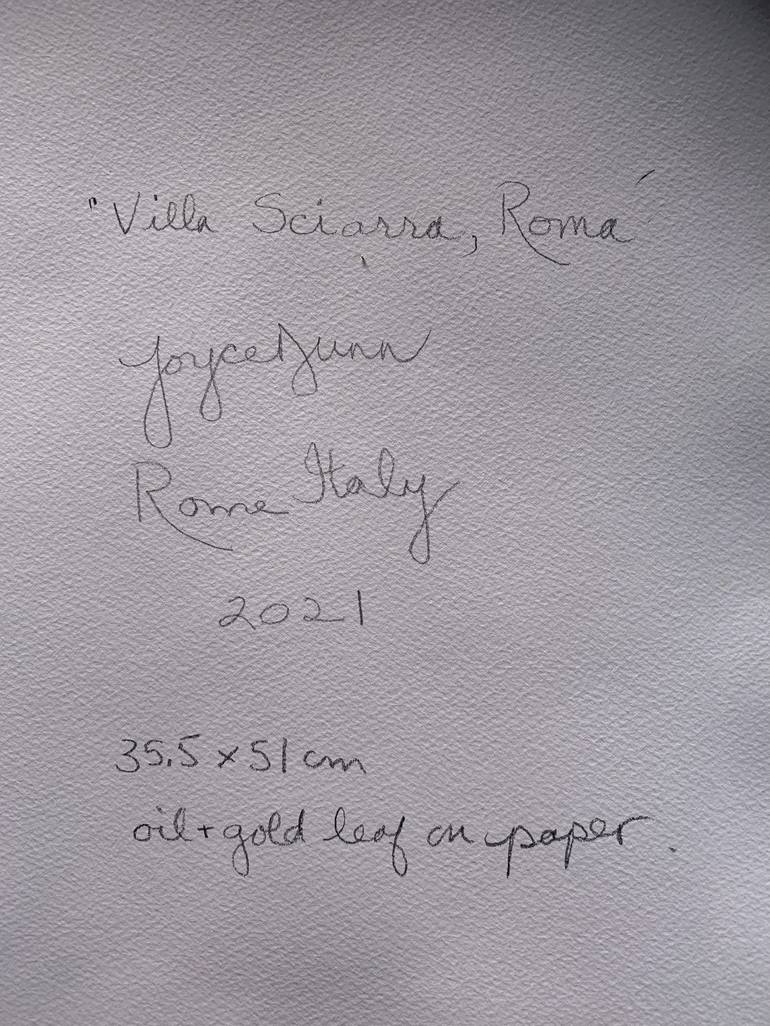 "Villa Sciarra, Roma"
Joyce Dunn
Rome Italy
2021
35.5 x 51 cm
oil + gold leaf on paper.